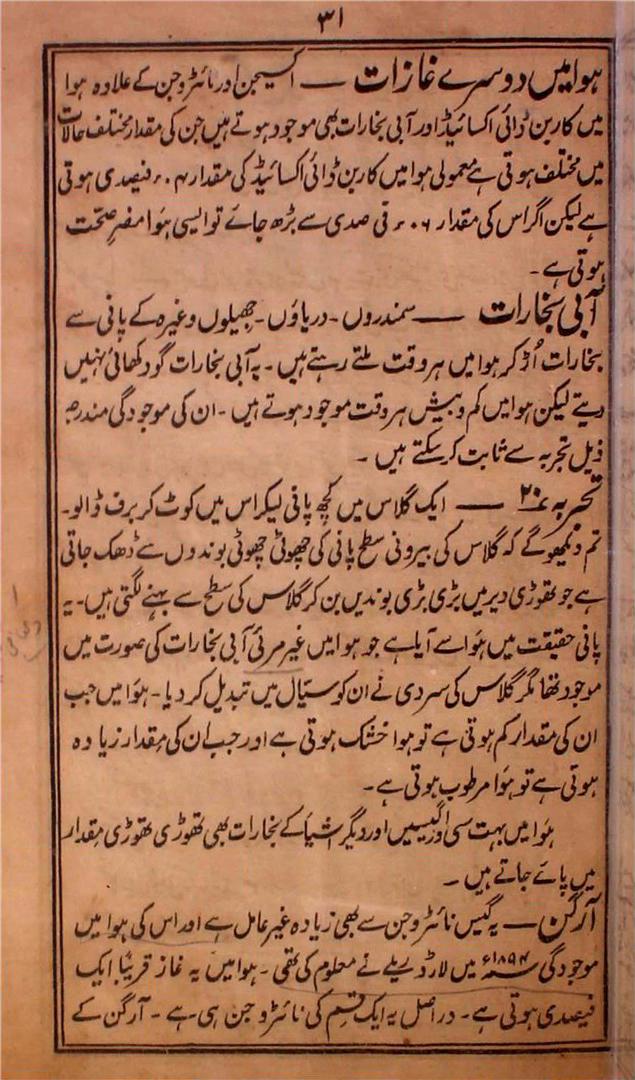 ۳۱
ہوا میں دوسرے غازات — اکسیجن اور نائٹروجن کے علاوہ ہوا
میں کاربن ڈائی اکسائیڈ اور آبی بخارات بھی موجود ہوتے ہیں جن کی مقدار مختلف حالات
میں مختلف ہوتی ہے معمولی ہوا میں کاربن ڈائی اکسائیڈ کی مقدار ۰۴ء فیصدی ہوتی
ہے لیکن اگر اس کی مقدار ۰۶ء فی صدی سے بڑھ جائے تو ایسی ہوا مضرِ صحت
ہوتی ہے۔
آبی بخارات — سمندروں۔ دریاؤں۔ جھیلوں وغیرہ کے پانی سے
بخارات اُڑ کر ہوا میں ہر وقت ملتے رہتے ہیں۔ یہ آبی بخارات گو دکھائی نہیں
دیتے لیکن ہوا میں کم و بیش ہر وقت موجود ہوتے ہیں۔ ان کی موجودگی مندرجہ
ذیل تجربہ سے ثابت کر سکتے ہیں ۔
تجربہ ۲۰ — ایک گلاس میں کچھ پانی لیکر اس میں کوٹ کر برف ڈالو۔
تم دیکھو گے کہ گلاس کی بیرونی سطح پانی کی چھوٹی چھوٹی بوندوں سے ڈھک جاتی
ہے جو تھوڑی دیر میں بڑی بڑی بوندیں بن کر گلاس کی سطح سے بہنے لگتی ہیں۔ یہ
پانی حقیقت میں ہوا سے آیا ہے جو ہوا میں غیر مرئی آبی بخارات کی صورت میں
موجود تھا مگر گلاس کی سردی نے ان کو سیّال میں تبدیل کر دیا۔ ہوا میں جب
ان کی مقدار کم ہوتی ہے تو ہوا خشک ہوتی ہے اور جب ان کی مقدار زیادہ
ہوتی ہے تو ہوا مرطوب ہوتی ہے۔
ہوا میں بہت سی اور گیسیں اور دیگر اشیا کے بخارات بھی تھوڑی تھوڑی مقدار
میں پائے جاتے ہیں ۔
آرگن — یہ گیس نائٹروجن سے بھی زیادہ غیر عامل ہے اور اس کی ہوا میں
موجودگی ۱۸۹۴ء میں لارڈ ریلے نے معلوم کی تھی۔ ہوا میں یہ غاز قریباً ایک
فیصدی ہوتی ہے۔ دراصل یہ ایک قسم کی نائٹروجن ہی ہے۔ آرگن کے